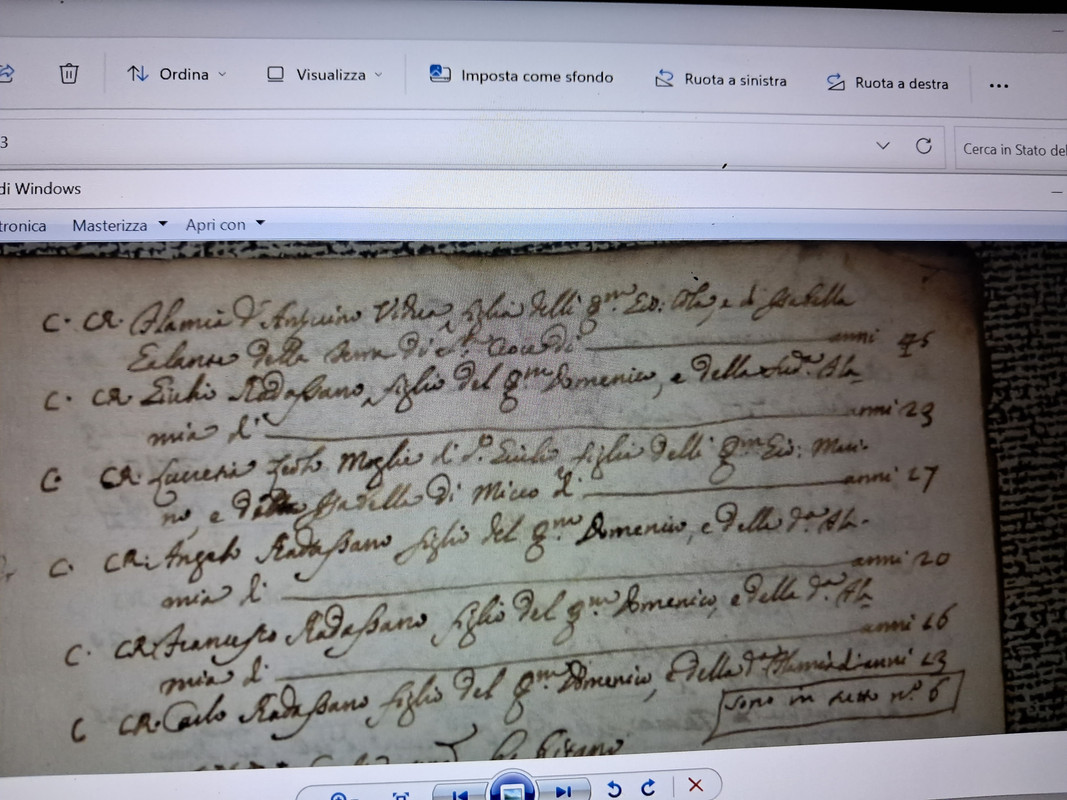 Ordina
Visualizza
Imposta come sfondo
Ruota a sinistra
Ruota a destra
...
3
Cerca in Stato del
di Windows
tronica Masterizza Apri con
C. CR. Flamia d' Vidua figlia delli qm Gio: e di Isabella
della Serra di anni 45
C. CR. Giulio Radassano figlio del qm Domenico, e della sud.a Fla-
mia d' anni 23
C. CR. Lucretia Moglie d' d.o Giulio figlia delli qm Gio:
no, e Isabella di Micco d' anni 27
C. CR. Angelo Radassano figlio del qm Domenico, e della d.a Fla-
mia d' anni 20
C. CR. Francesco Radassano figlio del qm Domenico, e della d.a Fla-
mia d' anni 16
C CR. Carlo Radassano figlio del qm Domenico, e della d.a Flamia d' anni 13
sono in n.o 6